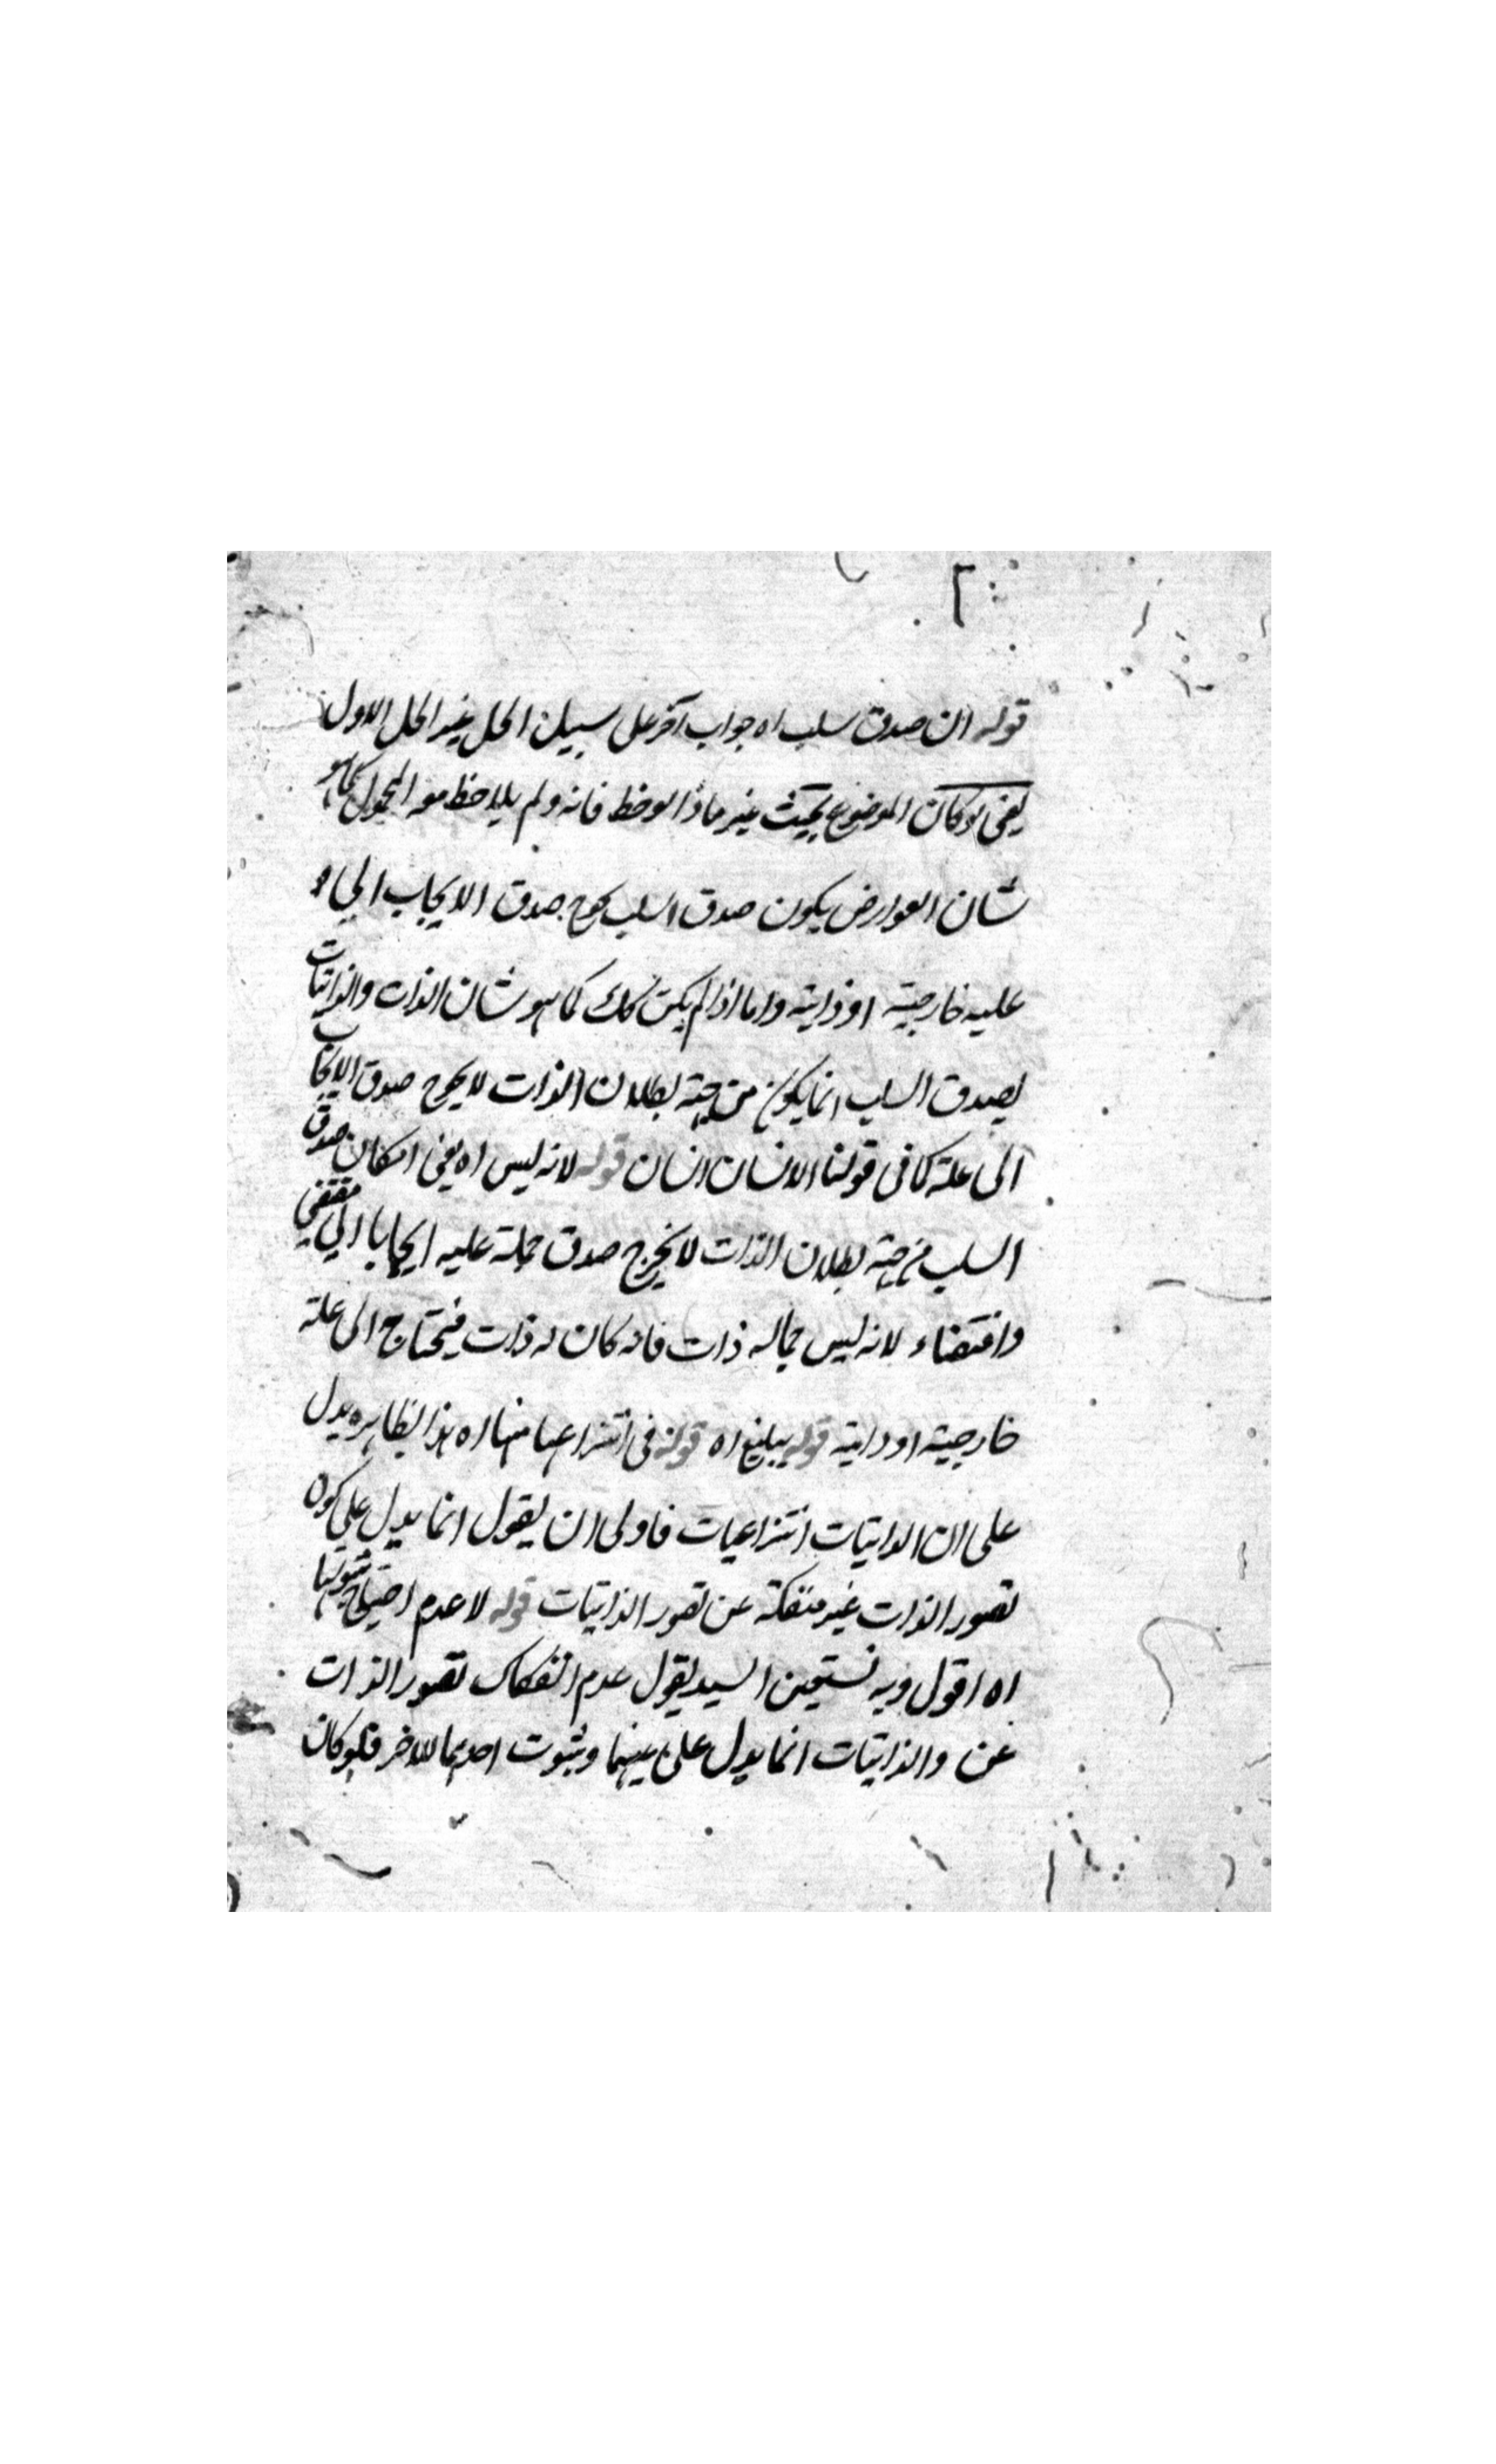 قوله ان صدق سلب اه جواب آخر على سبيل الحل غير الحل الاول
يعنى لو كان الموضوع بحيث غير ما اذا لوحظ فانه ولم يلاحظ معه المحمول كما هو
شان العوارض يكون صدق السلب يحوج صدق الايجاب الى
عليه خارجية او ذاتية واما اذا لم يكن كك كما هو شان الذات والذاتيات
لصدق السلب انما يكون من جهة بطلان الذات لا يحوج صدق الايجاب
الى علة كما فى قولنا الانسان انسان قوله لانه ليس اه يعنى امكان صدق
السلب من جهة بطلان الذات لا يخرج صدق حمله عليه ايجابا الى مقتضى
واقتضاء لانه ليس حماله ذات فانه كان له ذات فيحتاج الى علة
خارجية او ذاتية قوله يبلغ اه قوله فى انتزاعها منها اه هذا بظاهره يدل
على ان الذاتيات انتزاعيات فاولى ان يقول انما يدل على كون
تصور الذات غير منفكة عن تصور الذاتيات قوله لا عدم احتياج ثبوتها
اه اقول وبه نستعين السيد يقول عدم انفكاك تصور الذات
عن والذاتيات انما يدل على بينهما وثبوت احدهما للاخر فلو كان